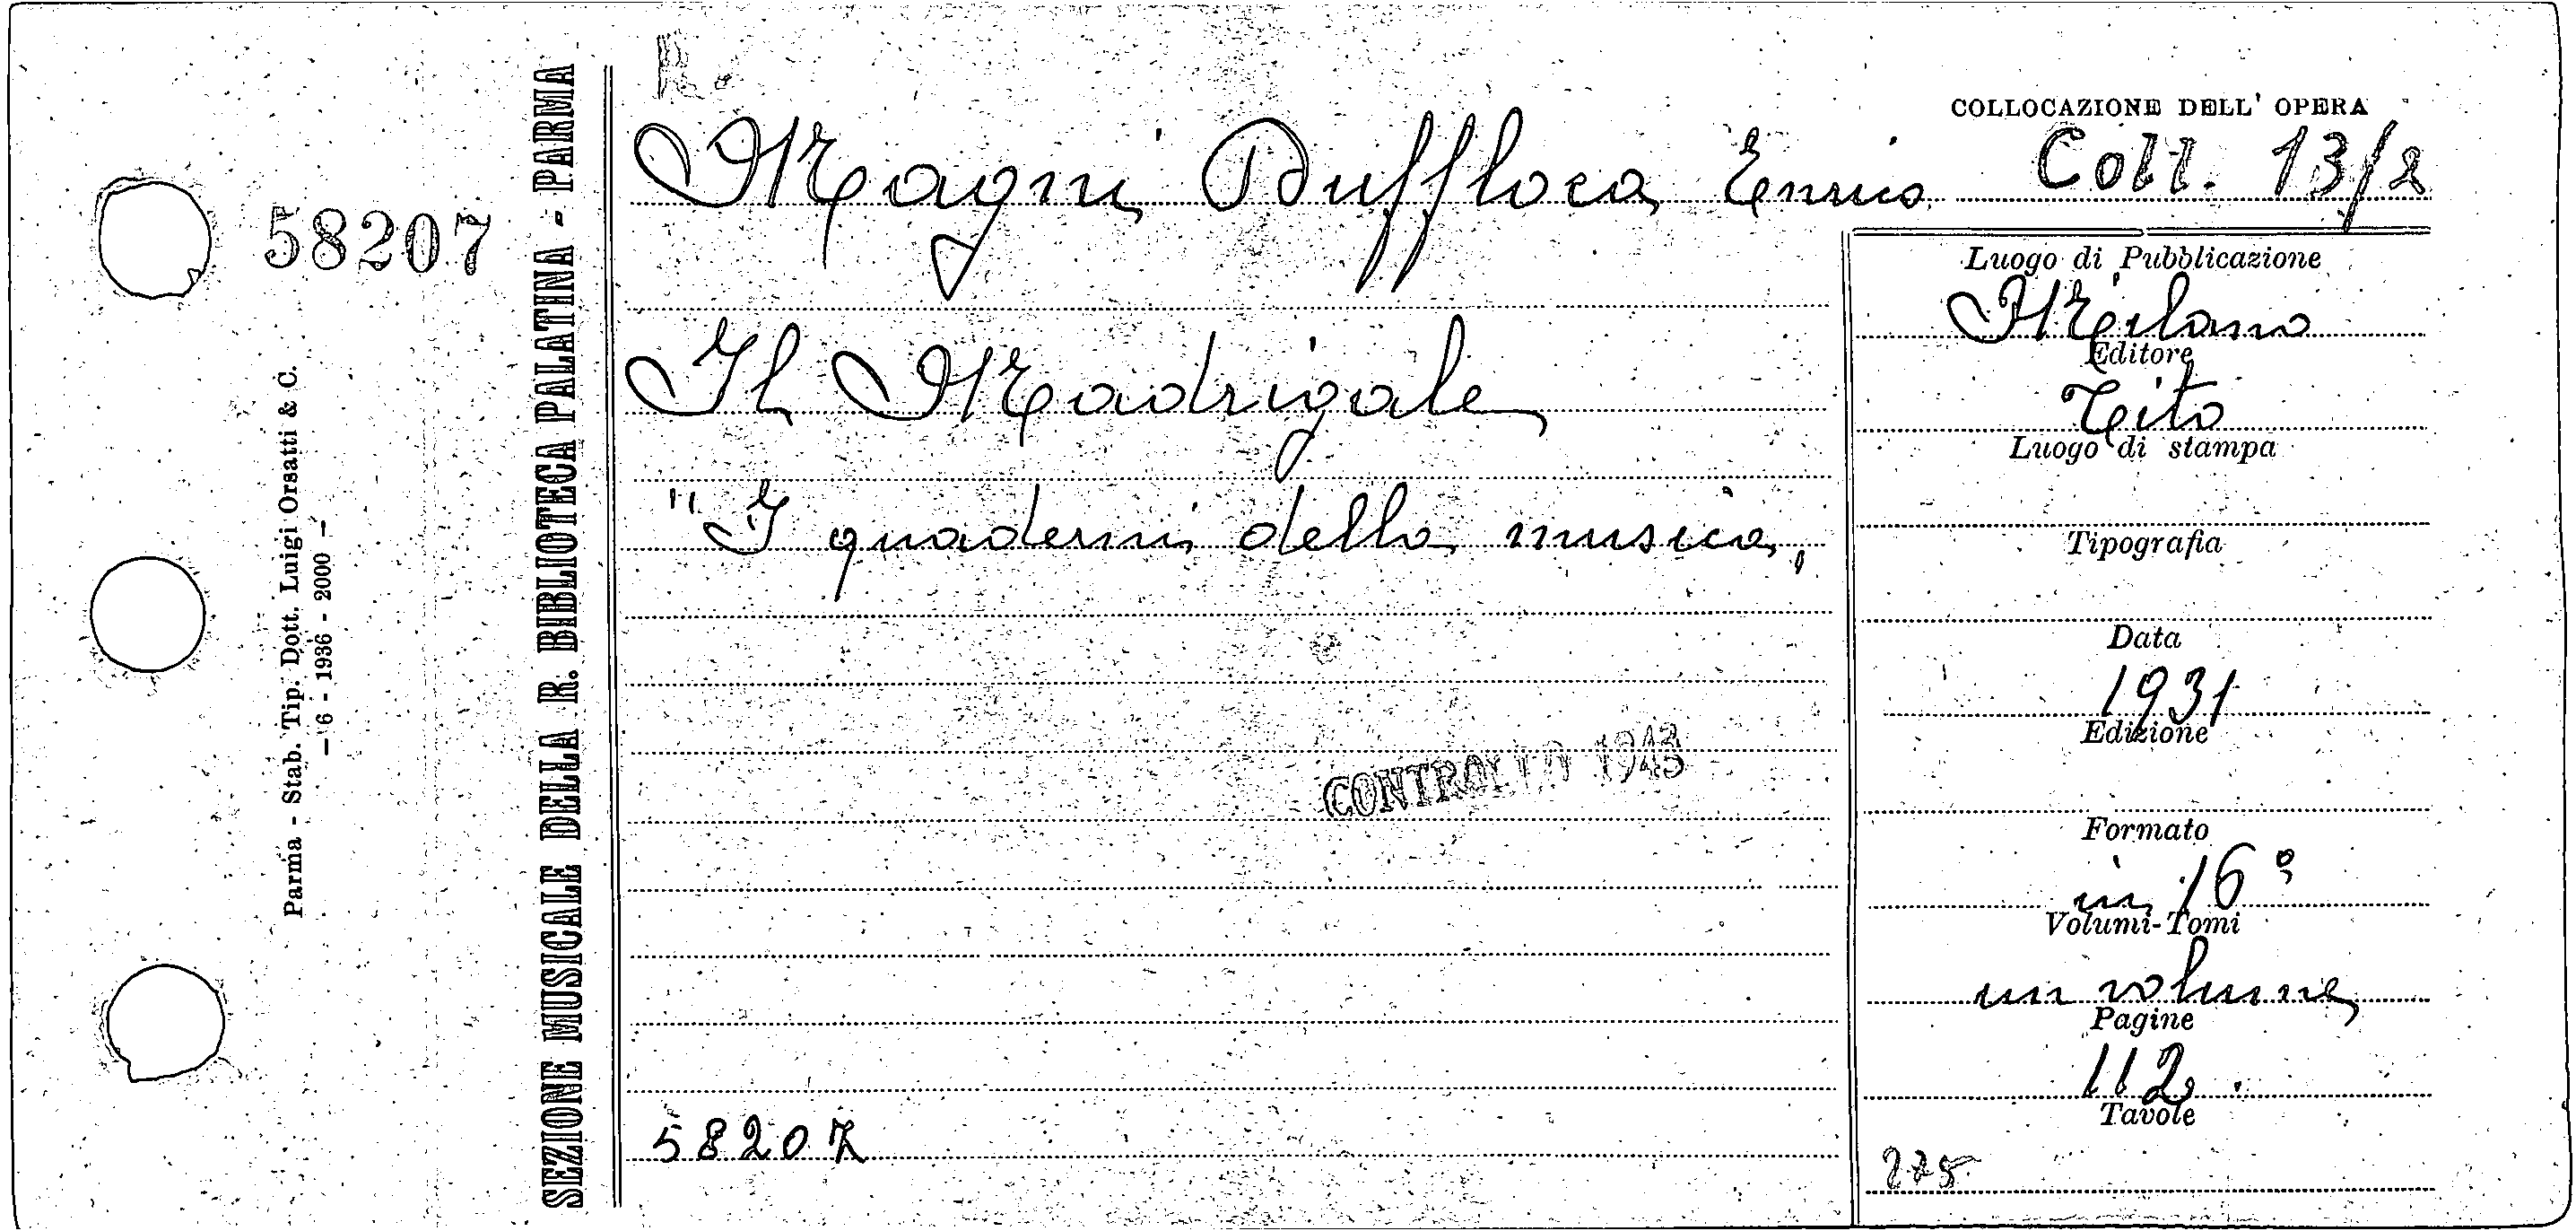 R.
COLLOCAZIONE DELL' OPERA
Magni Duffloca Enrico
Coll. 13/2
58207
Il Madrigale
"I quaderni della musica,
CONTROLLO 1943
58207
Luogo di Pubblicazione
Milano
Editore
Tito
Luogo di stampa
Tipografia
Data
1931
Edizione
Formato
in 16°
Volumi-Tomi
un volume
Pagine
112
Tavole
SEZIONE MUSICALE DELLA R. BIBLIOTECA PALATINA - PARMA
Parma - Stab. Tip. Dott. Luigi Orsatti & C.
— 6 - 1936 - 2000 —